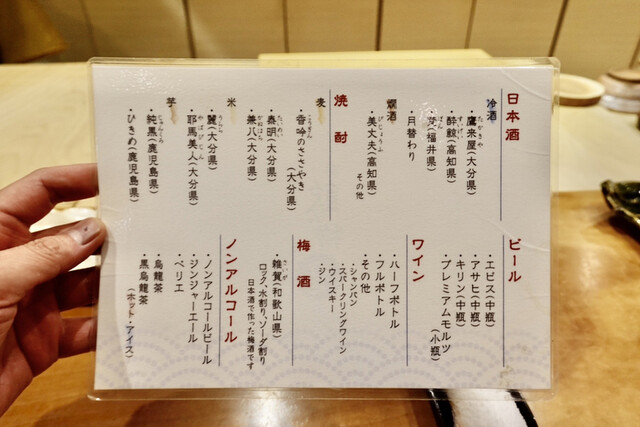 日本酒
冷酒
・鷹来屋(大分県)
たかきや
・酔鯨(高知県)
すいげい
(福井県)
・月替わり
燗酒
・美丈夫(高知県)
びじょうふ
その他
焼酎
麦
・香吟のささやき
こうぎん
(大分県)
・泰明(大分県)
たいめい
・兼八(大分県)
かねはち
米
・麗(大分県)
うらら
・耶馬美人(大分県)
やばびじん
芋
・純黒(鹿児島県)
じゅんくろ
・ひきめ(鹿児島県)
ビール
・エビス(中瓶)
・アサヒ(中瓶)
・キリン(中瓶)
・プレミアムモルツ
(小瓶)
ワイン
・ハーフボトル
・フルボトル
・その他
・シャンパン
・スパークリングワイン
・ウイスキー
・ジン
梅酒
・雑賀(和歌山県)
さいが
ロック、水割り、ソーダ割り
日本酒で作った梅酒です
ノンアルコール
・ノンアルコールビール
・ジンジャーエール
・ペリエ
・烏龍茶
・黒烏龍茶
(ホット・アイス)